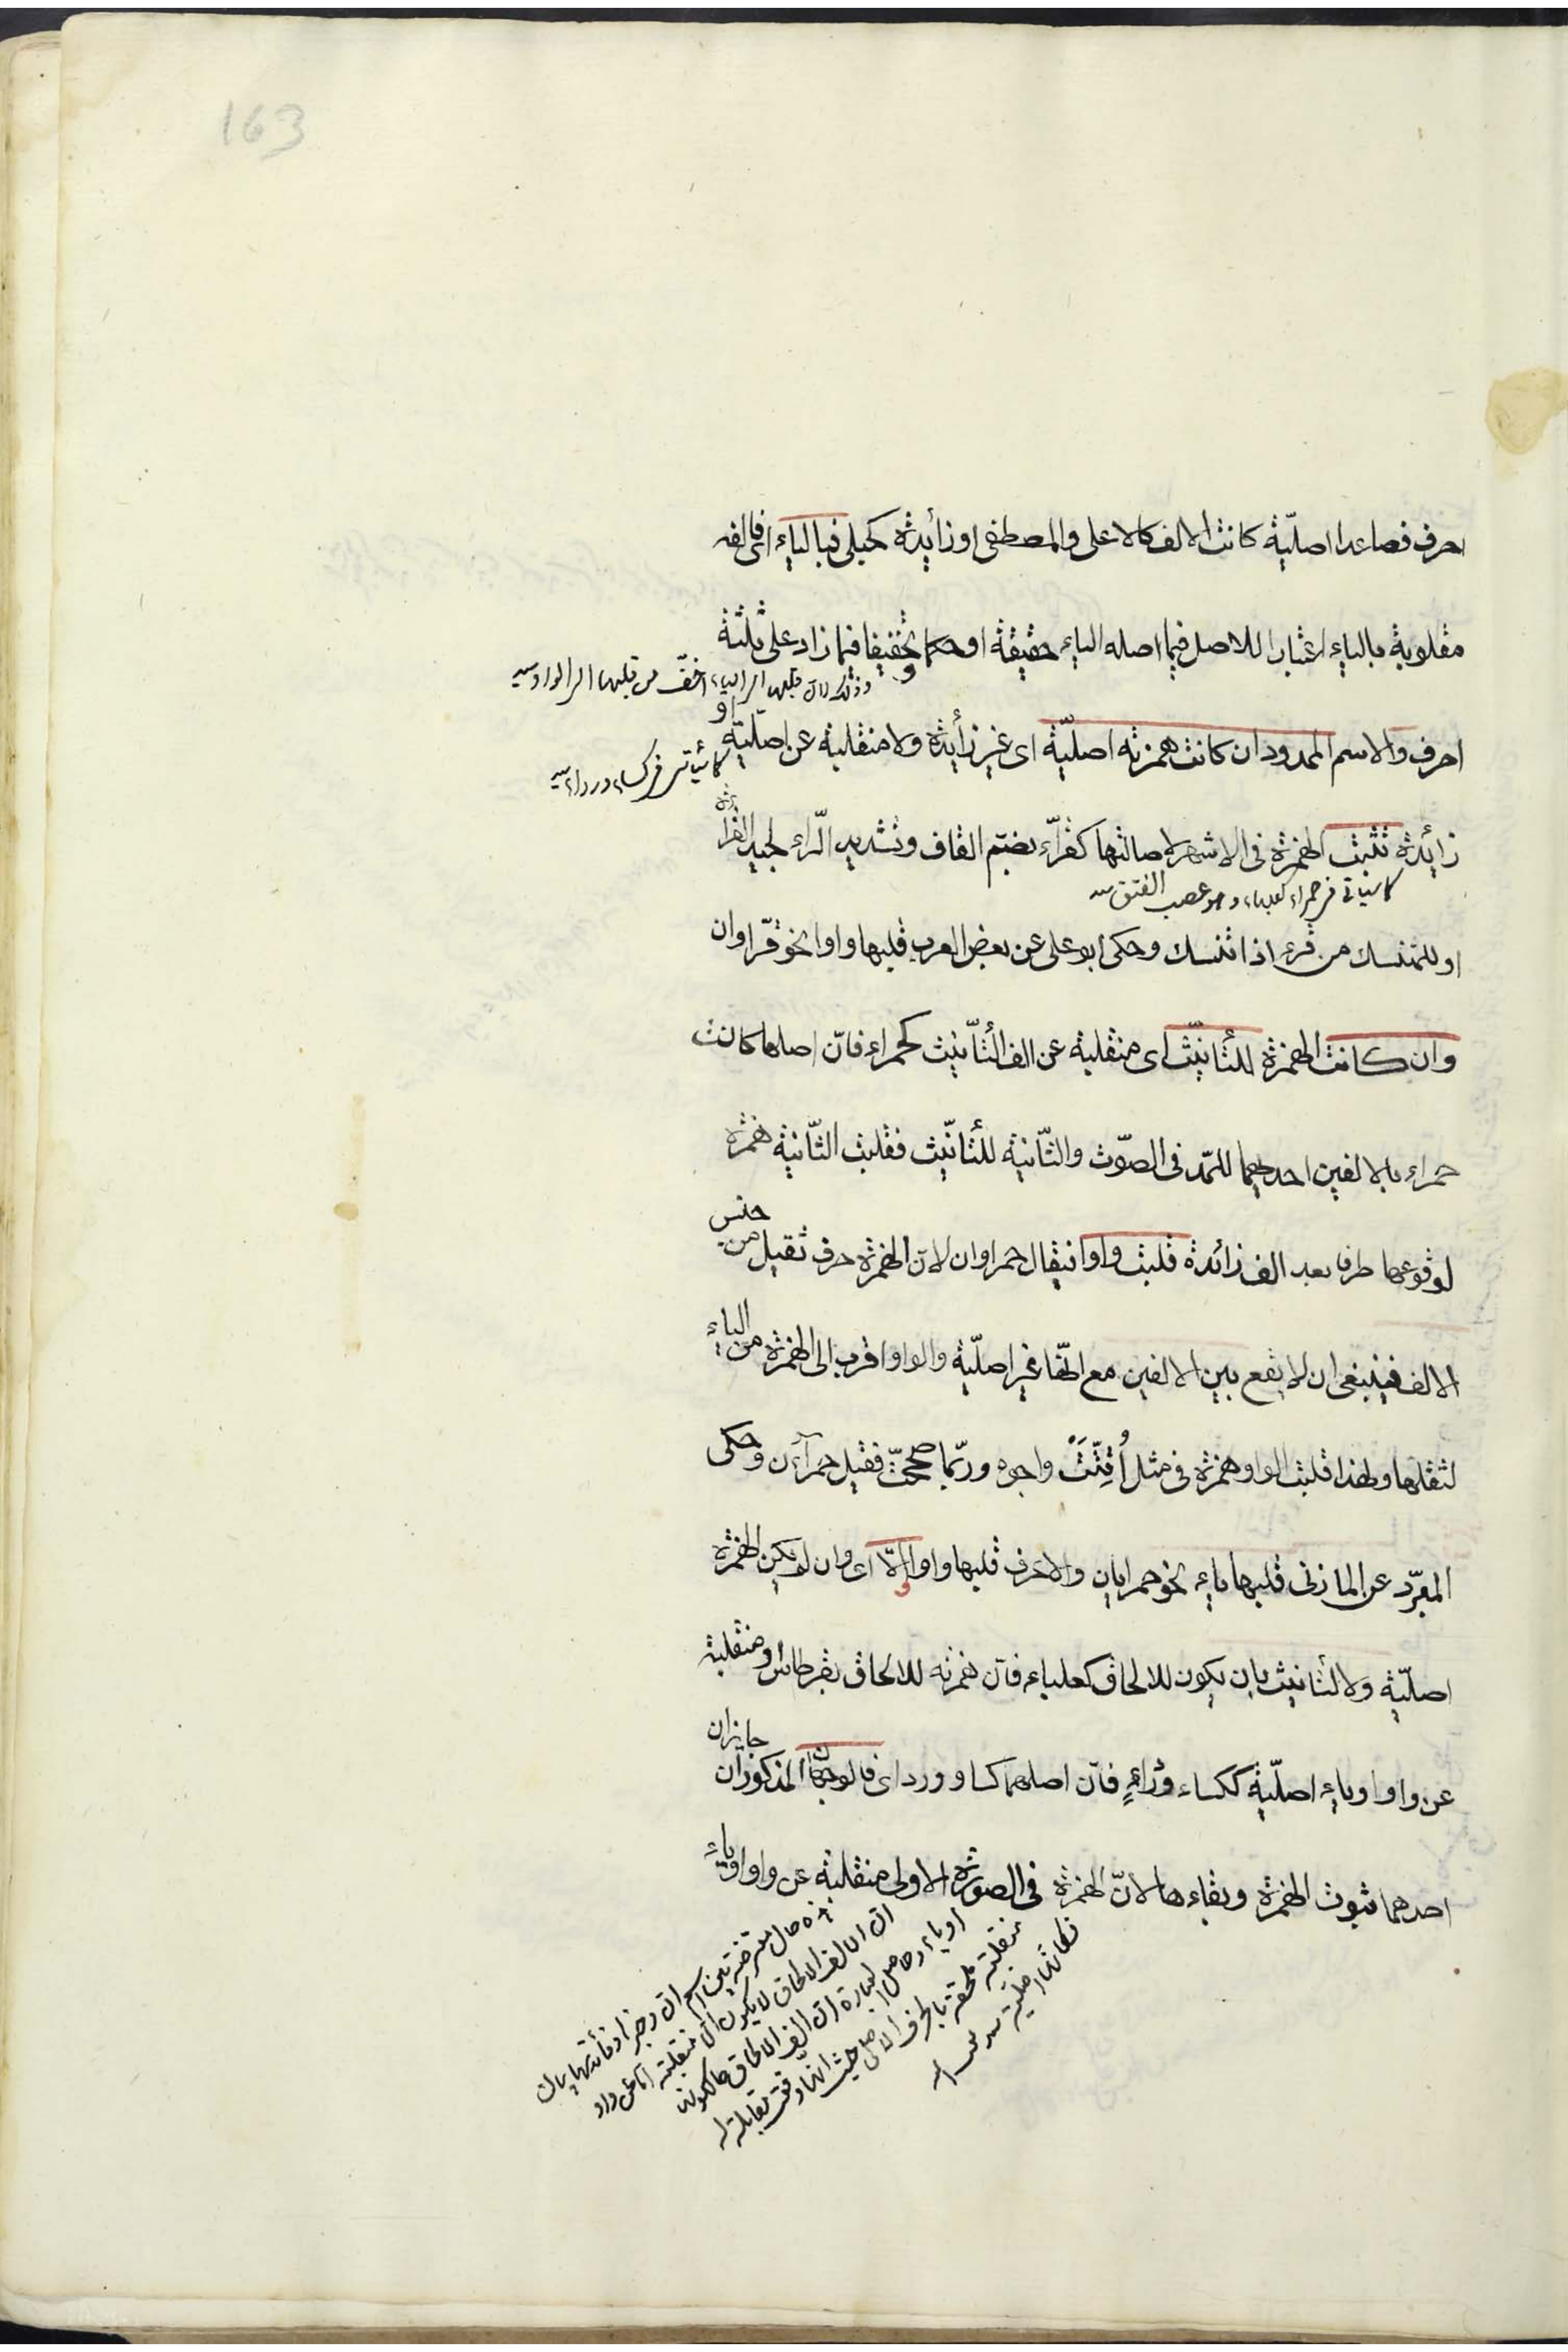 163
احرف فصاعدا اصلیّة كانت الالف كالاعلی والمصطفی او زائدة كحبلی فبالیاء ای فالفه
مقلوبة بالیاء اعتبارا للاصل فیما اصله الیاء حقیقة او حكما و تخفیفا فیما زاد علی ثلثة
وذلك لان قلبها الی الیاء اخفّ من قلبها الی الواو
احرف والاسم الممدود ان كانت همزته اصلیّة ای غیر زائدة ولا منقلبة عن اصلیّة او
كما سیأتی فی كساء ورداء
زائدة تثبت الهمزة فی الاشهر لاصالتها كقرّاء بضم القاف وتشدید الرّاء لجید القراءة
كما سیاتی فی حمراء كعلباء وهو عصب العنق
او للمتنسك من قرء اذا تنسك وحكی ابو علی عن بعض العرب قلبها واوا نحو قرّاوان
وان كانت الهمزة للتأنیث ای منقلبة عن الف التأنیث كحمراء فانّ اصلها كانت
حمراء بالالفین احدیهما للمدّ فی الصّوت والثّانیة للتأنیث فقلبت الثّانیة همزة
لوقوعها طرفا بعد الف زائدة قلبت واوا فیقال حمراوان لانّ الهمزة حرف ثقیل من جنس
الالف فینبغی ان لا یقع بین الالفین مع انّها غیر اصلیّة والواو اقرب الی الهمزة من الیاء
لثقلها ولهذا قلبت الواو همزة فی مثل اُقِّتَتْ واجوه وربّما صححت فقیل حمراءان وحكی
المبرّد عن المازنی قلبها یاء نحو حمرایان والاعرف قلبها واوا والّا ای وان لم یكن الهمزة
اصلیّة ولا لتأنیث بان یكون للالحاق كعلباء فانّ همزته للالحاق بقرطاس ومنقلبة
عن واو او یاء اصلیّة ككساء ورداءٍ فانّ اصلهما كساو وردای فالوجهان المذكوران جایزان
احدهما ثبوت الهمزة وبقاءها لانّ الهمزة فی الصورة الاولی منقلبة عن واو او یاء